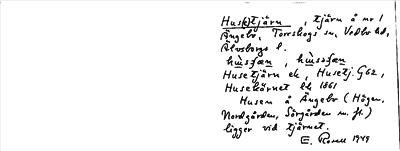 Hus(e)tjärn, tjärn å nr 1
Ängebo, Torrskogs sn, Vedbo hd,
Älvsborgs l.
hùsfæn, hùssfæn
Husetjärn ek, Husetj. G62,
Husekärnet lk 1861
Husen å Ängebo (Högen,
Nordgården, Sörgården m. fl.)
ligger vid tjärnet.
E. Rosell 1949